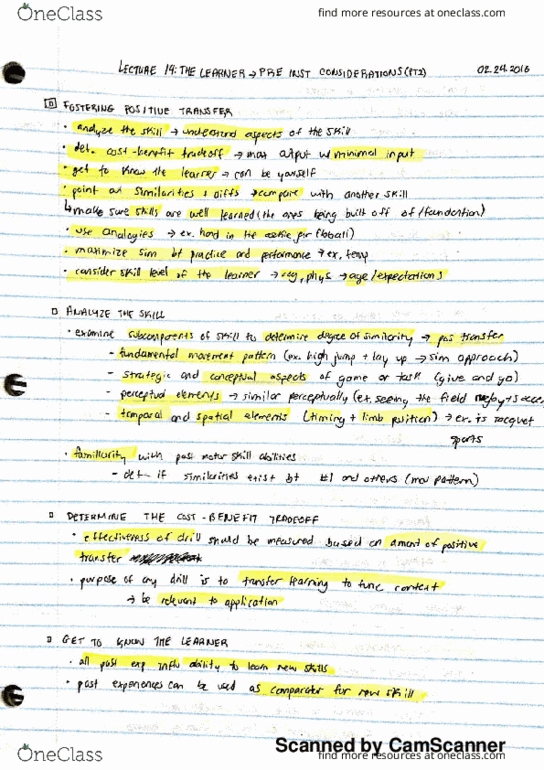 OneClass
find more resources at oneclass.com
LECTURE 14: THE LEARNER → PRE INST CONSIDERATIONS (PT2) 02.24.2016
FOSTERING POSITIVE TRANSFER
• analyze the skill → understand aspects of the skill
• det. cost-benefit tradeoff → max output w/ minimal input
• get to know the learner → can be yourself
• point out similarities & diffs → compare with another skill
↳ make sure skills are well learned (the ones being built off of / foundation)
• use analogies → ex. hand in the cookie jar (bball)
• maximize sim bt practice and performance → ex. temp
• consider skill level of the learner → cog, phys → age/expectations
ANALYZE THE SKILL
• examine subcomponents of skill to determine degree of similarity → pos transfer
- fundamental movement pattern (ex. high jump + lay up → sim approach)
- strategic and conceptual aspects of game or task (give and go)
- perceptual elements → similar perceptually (ex. seeing the field rugby + soccer
- temporal and spatial elements (timing + limb position) → ex. is racquet
sports
• familiarity with past motor skill abilities
- det. if similarities exist bt #1 and others (mov pattern)
DETERMINE THE COST-BENEFIT TRADEOFF
• effectiveness of drill should be measured based on amount of positive
transfer
• purpose of any drill is to transfer learning to func context
→ be relevant to application
GET TO KNOW THE LEARNER
• all past exp influ ability to learn new skills
• past experiences can be used as comparator for new skill
Scanned by CamScanner
OneClass
find more resources at oneclass.com